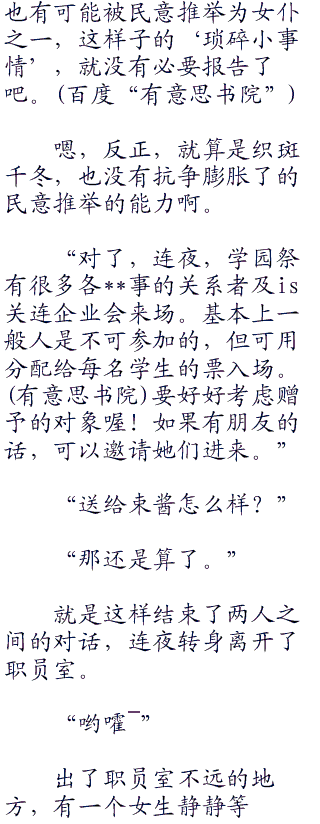 也有可能被民意推举为女仆
之一，这样子的‘琐碎小事
情’，就没有必要报告了
吧。(百度“有意思书院”)
嗯，反正，就算是织斑
千冬，也没有抗争膨胀了的
民意推举的能力啊。
“对了，连夜，学园祭
有很多各**事的关系者及is
关连企业会来场。基本上一
般人是不可参加的，但可用
分配给每名学生的票入场。
(有意思书院)要好好考虑赠
予的对象喔！如果有朋友的
话，可以邀请她们进来。”
“送给束酱怎么样？”
“那还是算了。”
就是这样结束了两人之
间的对话，连夜转身离开了
职员室。
“哟嚯¯”
出了职员室不远的地
方，有一个女生静静等